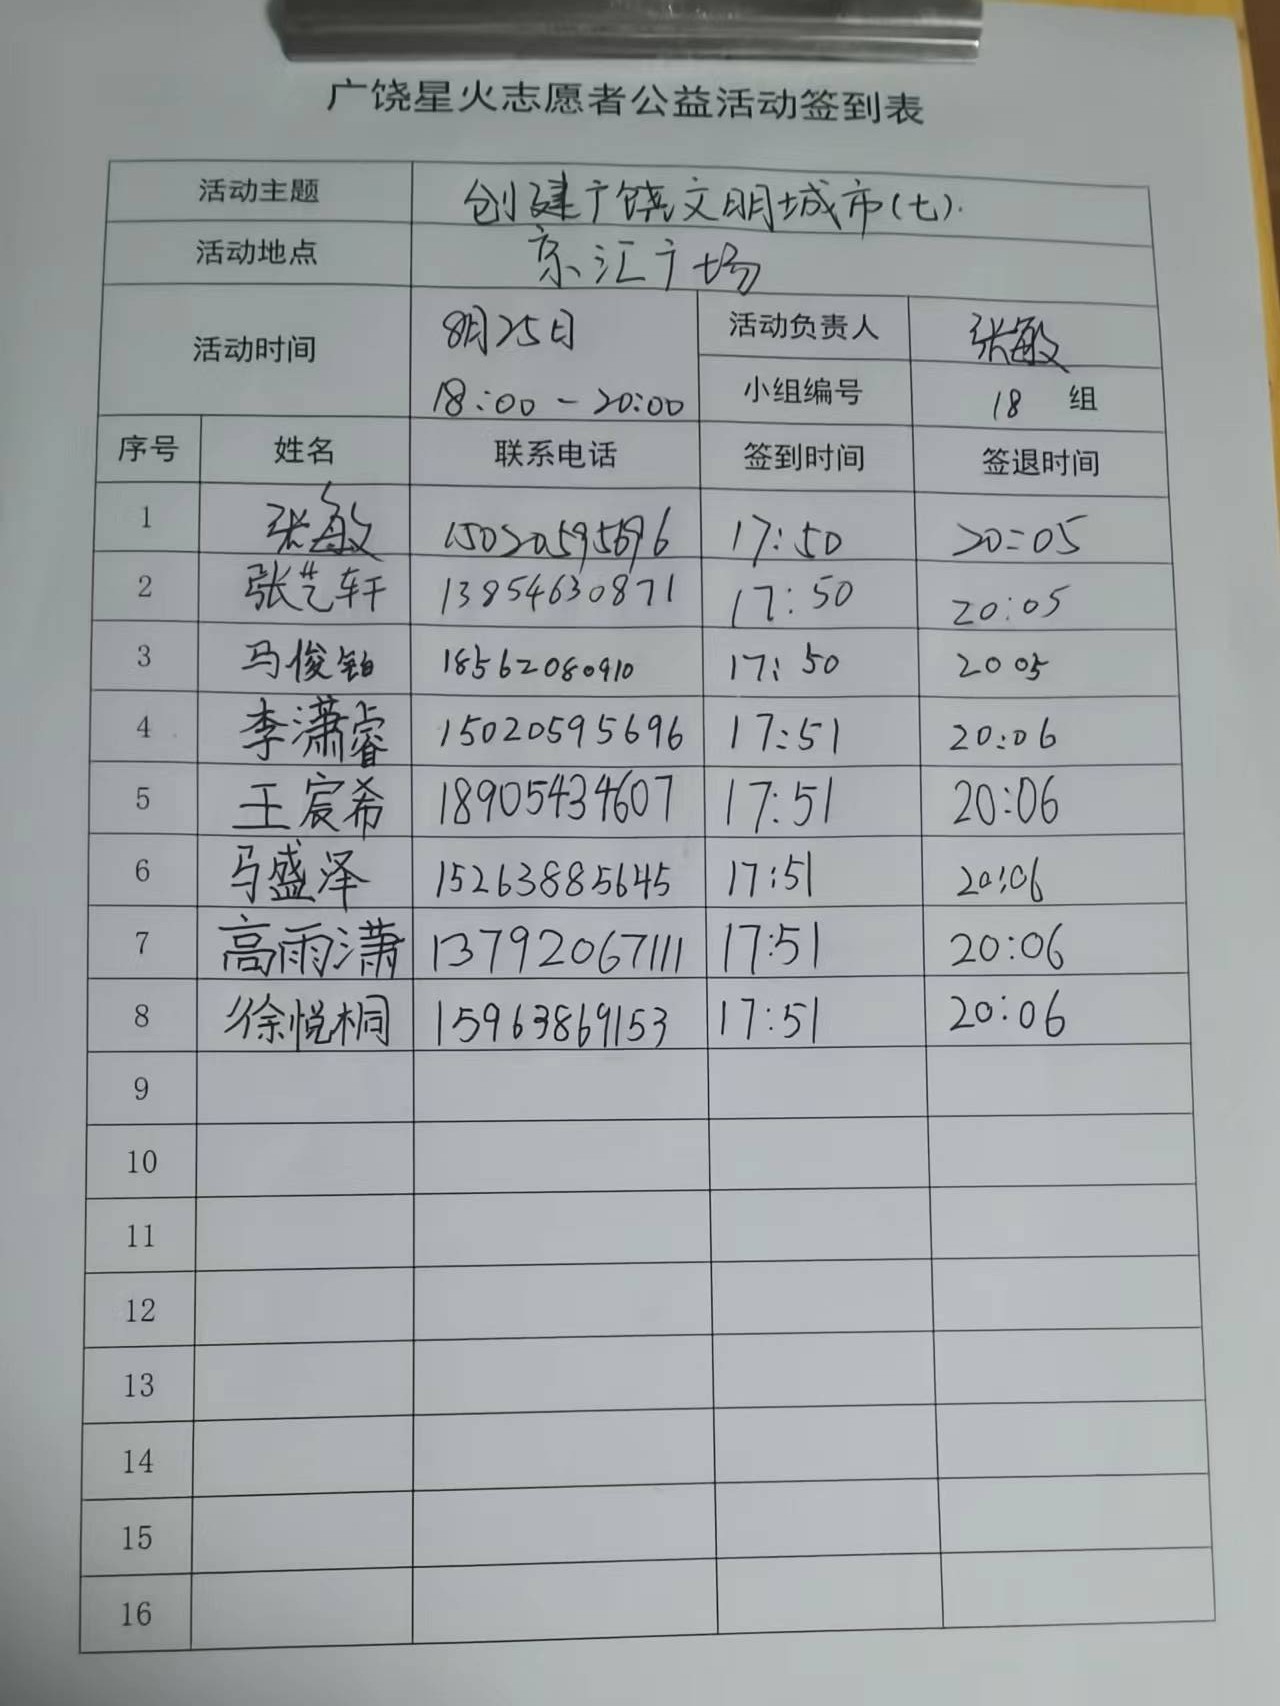 广饶星火志愿者公益活动签到表
活动主题 创建广饶文明城市(七).
活动地点 京汇广场
活动时间 8月25日 18:00-20:00 活动负责人 张敏
小组编号 18 组
序号 姓名 联系电话 签到时间 签退时间
1 张敏 17:50 20:05
2 张艺轩 13854630871 17:50 20:05
3 马俊铂 18562080910 17:50 20 05
4 李潇睿 15020595696 17:51 20:06
5 王宸希 18905434607 17:51 20:06
6 马盛泽 15263885645 17:51 20:06
7 高雨潇 13792067111 17:51 20:06
8 徐悦桐 15963869153 17:51 20:06
9
10
11
12
13
14
15
16